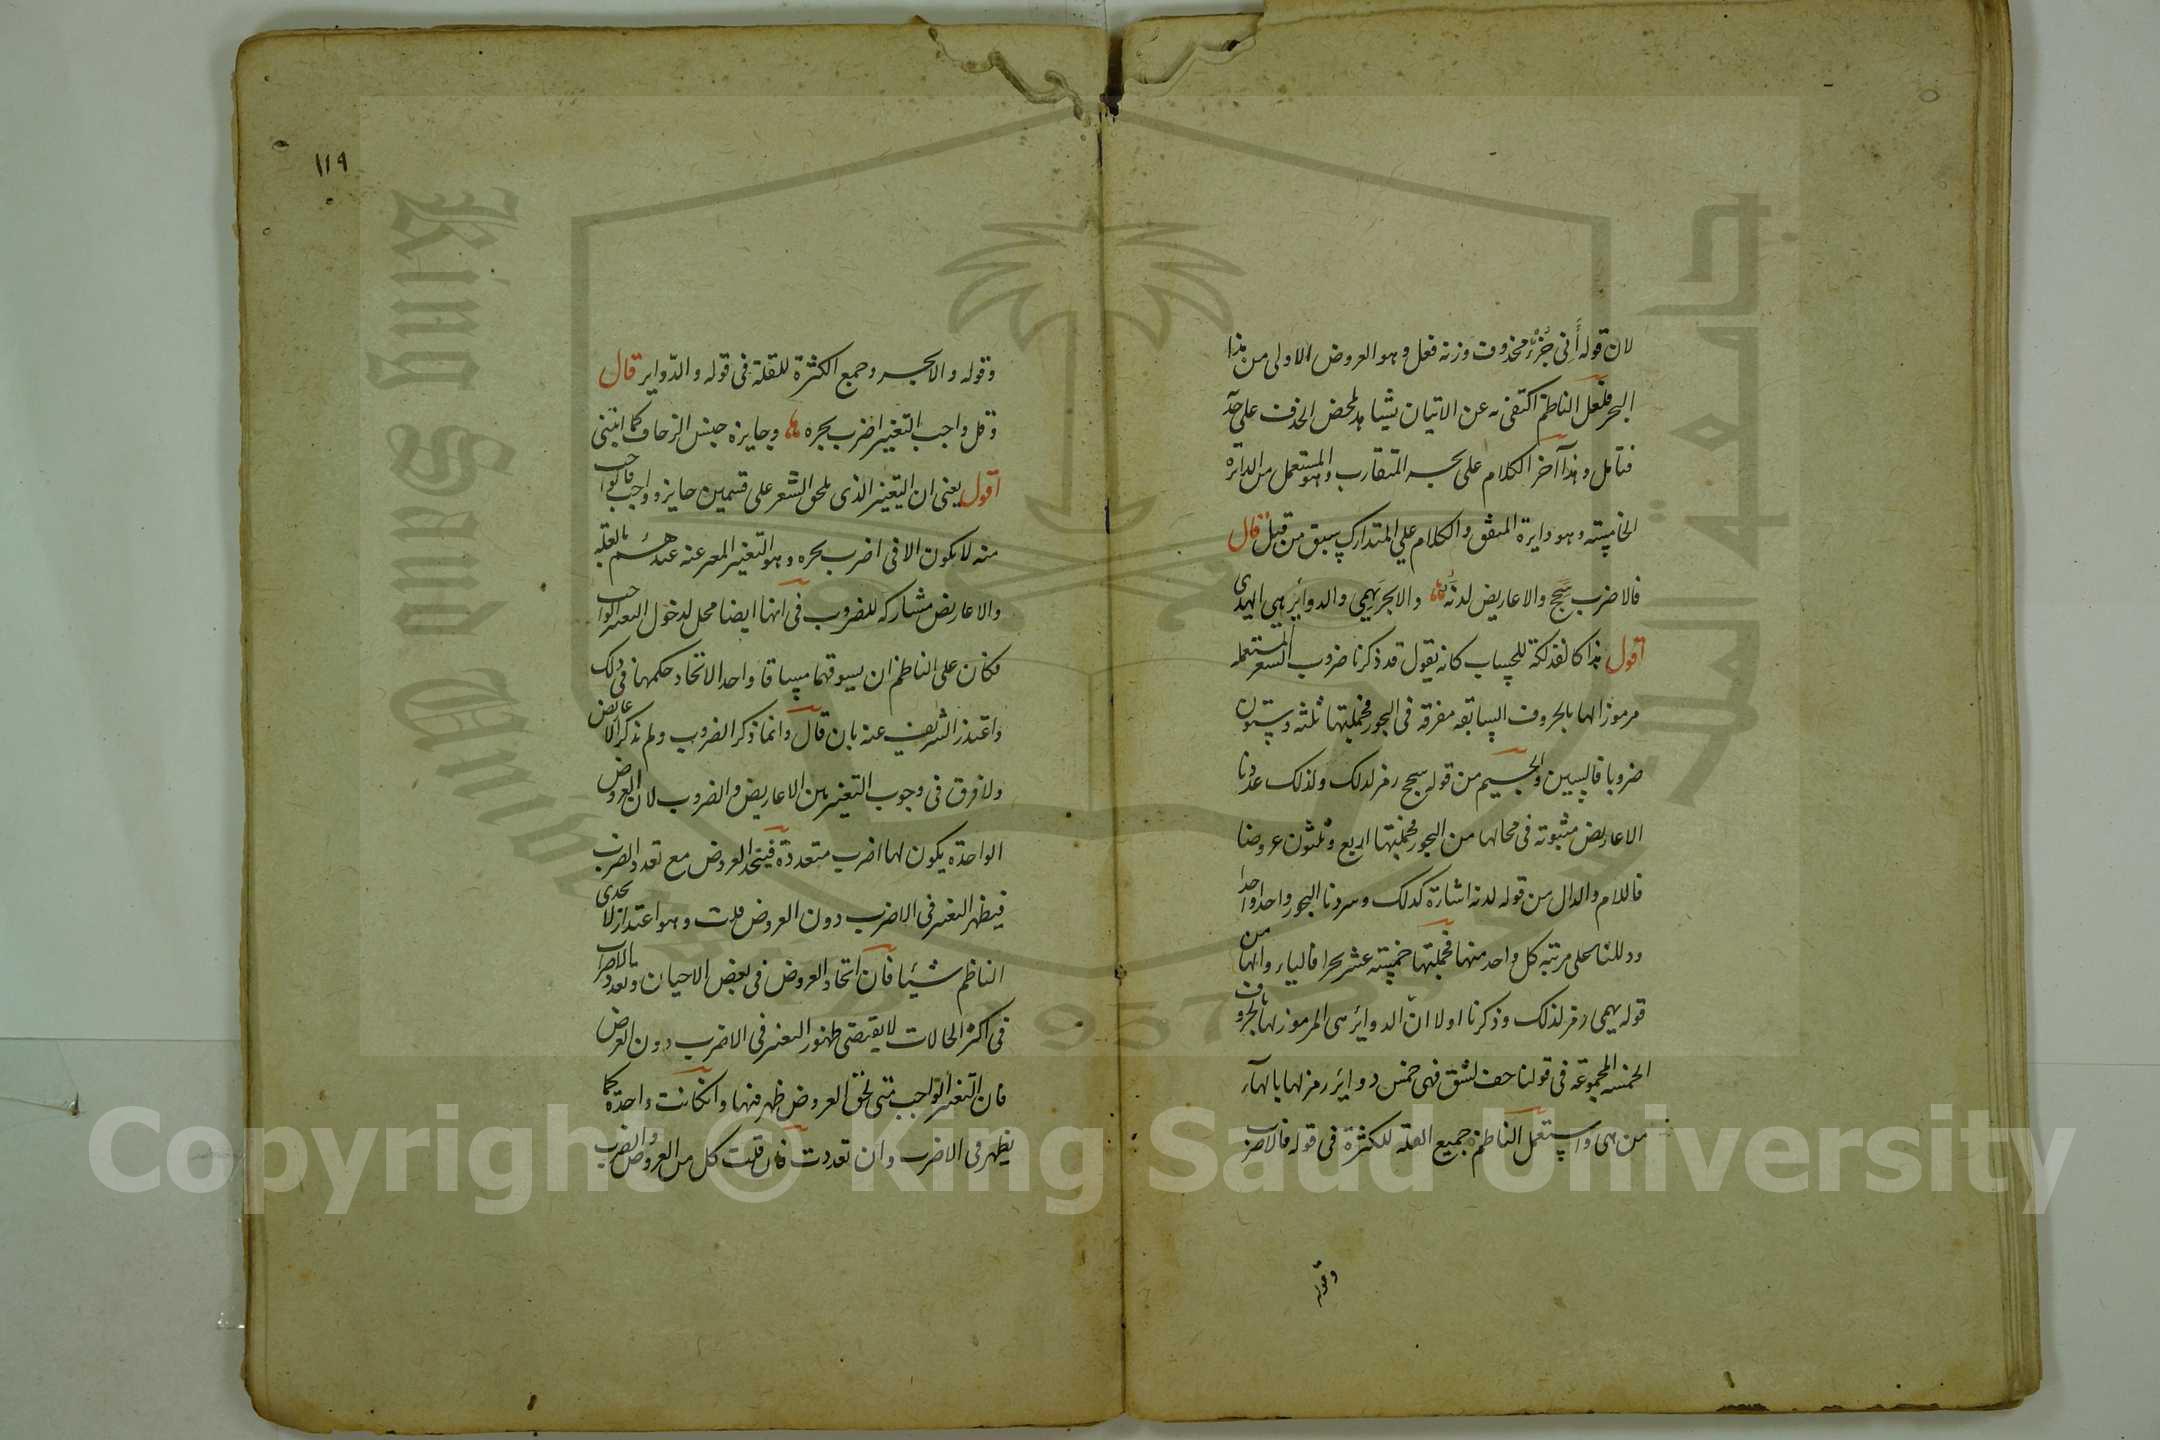 لان قوله أَنِى جُزْءٌ محذوف وزنه فعل وهو العروض الاولى من هذا
البحر فلعل الناظم اكتفى به عن الاتيان بشاهد لمحض الحذف على حدّ
فتأمل وهذا آخر الكلام على بحر المتقارب وهو المستعمل من الدائرة
الخامسة وهو دايرة المتفق والكلام علي المتدارك سبق من قبل قال
فالاضرب سَجَج والاعاريض لدنَةٌ والابحر يهمي والدوائر هي الهدى
اقول هذا كالفذلكة للحساب كانه يقول قد ذكرنا ضروب الشعر المستعمله
مرموزا لها بالحروف السابقه مفرقه فى البحور فجملتها ثلثه وستون
ضربا فالسين والجيم من قوله سجج رمز لذلك وكذلك عددنا
الاعاريض مثبوته فى محالها من البحور فجملتها اربع وثلثون عروضا
فاللام والدال من قوله لدنه اشارة كذلك وسردنا البحور واحدا واحدا
ودللنا على مرتبة كل واحد منها فجملتها خمسة عشر بحرا فالياء والها من
قوله يهمى رمز لذلك وذكرنا اولا انّ الدوائر هى المرموز لها بالحروف
الخمسه المجموعه فى قولنا خف لشق فهى خمس دوائر رمز لها بالهآء
من هى واستعمل الناظم جميع القلة للكثرة فى قوله فالاضرب
وقوله
١١٩
وقوله والابحر وجمع الكثرة للقلة فى قوله والدّواير قال
وقل واجب التغيير اضرب بحره وجايزه جنس الزحاف كما انبنى
اقول يعنى ان التغيير الذى يلحق الشعر على قسمين جايز وواجب فالواجب
منه لا يكون الا فى اضرب بحره وهو التغيير المعبر عنه عندهم بالعلة
والاعاريض مشاركه للضروب فى انها ايضا محل لدخول التغيير الواجب
فكان على الناظم ان يسوقهما مساقا واحدا لاتحاد حكمهما فى ذلك
واعتذر الشريف عنه بان قال وانما ذكر الضروب ولم يذكر الاعاريض
ولا فرق فى وجوب التغيير بين الاعاريض والضروب لان العروض
الواحدة يكون لها اضرب متعددة فيتحد العروض مع تعدد الضرب
فيظهر التغيير فى الاضرب دون العروض قلت وهو اعتذار لا يجدى
الناظم شيئا فان اتحاد العروض فى بعض الاحيان وتعدد الاضراب
فى اكثر الحالات لا يقتضى ظهور التغيير فى الاضرب دون العروض
فان التغيير الواجب متى لحق العروض ظهر فيها وان كانت واحدة كما
يظهر فى الاضرب وان تعددت فان قلت كل من العروض والضرب